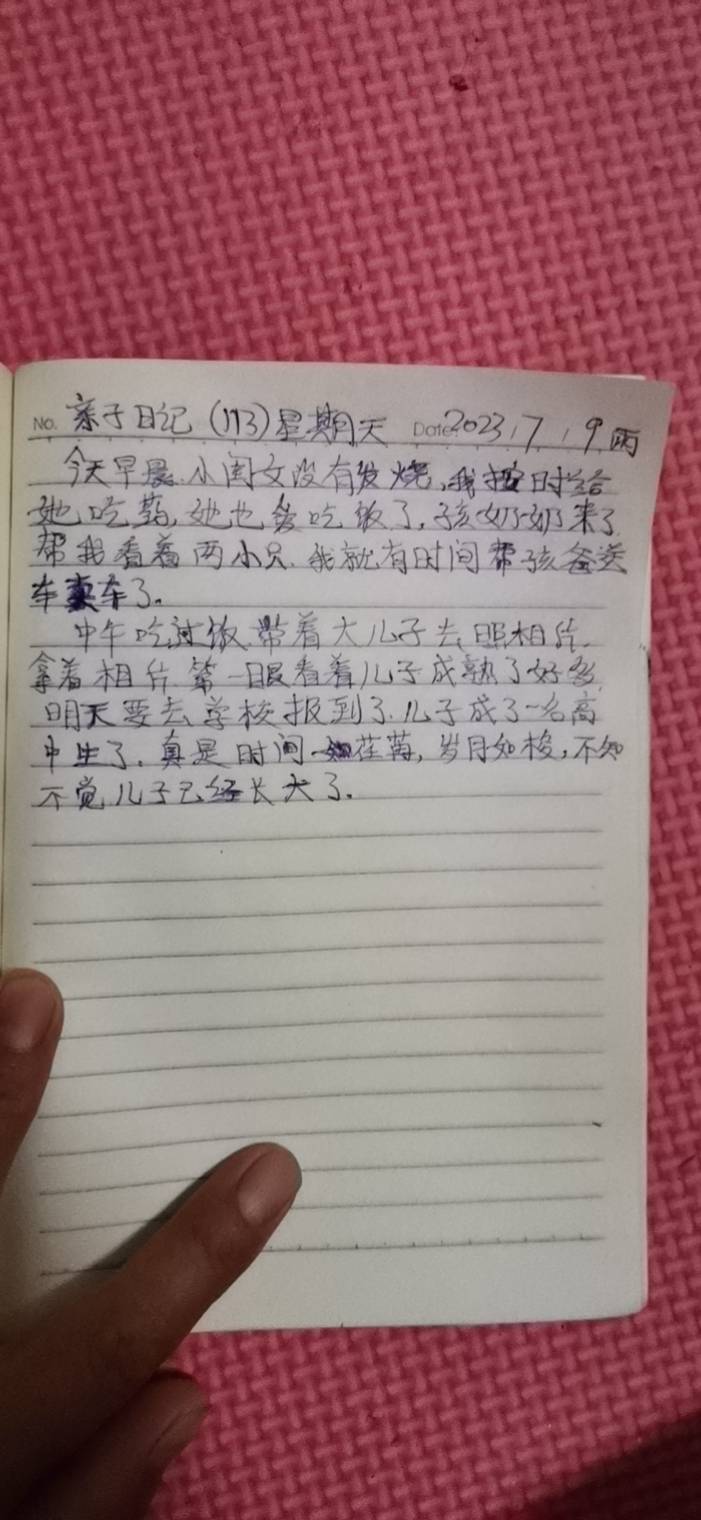 No. 亲子日记 (113) 星期天 Date 2023 / 7 / 9 雨
今天早晨.小闺女没有发烧,我按时给
她吃药,她也爱吃饭了.孩奶奶来了
帮我看着两小只.我就有时间帮孩爸送
车卖车了.
中午吃过饭.带着大儿子去照相片.
拿着相片第一眼看着儿子成熟了好多
明天要去学校报到了.儿子成了一名高
中生了.真是时间如荏苒,岁月如梭,不知
不觉儿子已经长大了.